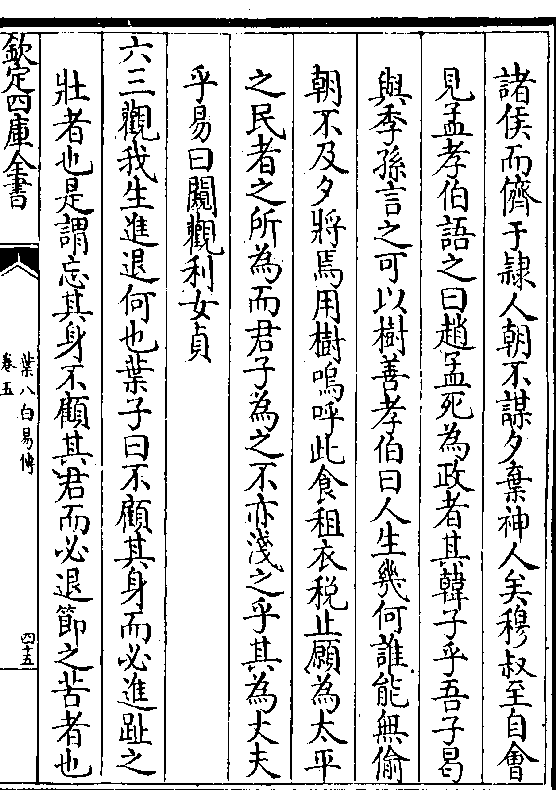 諸侯而儕于隸人朝不謀夕棄神人矣穆叔至自會
見孟孝伯語之曰趙孟死為政者其韓子乎吾子曷
與季孫言之可以樹善孝伯曰人生幾何誰能無偷
朝不及夕將焉用樹嗚呼此食租衣税止願為太平
之民者之所為而君子為之不亦淺之乎其為丈夫
乎易曰闚觀利女貞
六三觀我生進退何也葉子曰不顧其身而必進趾之
壯者也是謂忘其身不顧其君而必退節之苦者也
欽定四庫全書
葉八白易傳
卷五
四十五